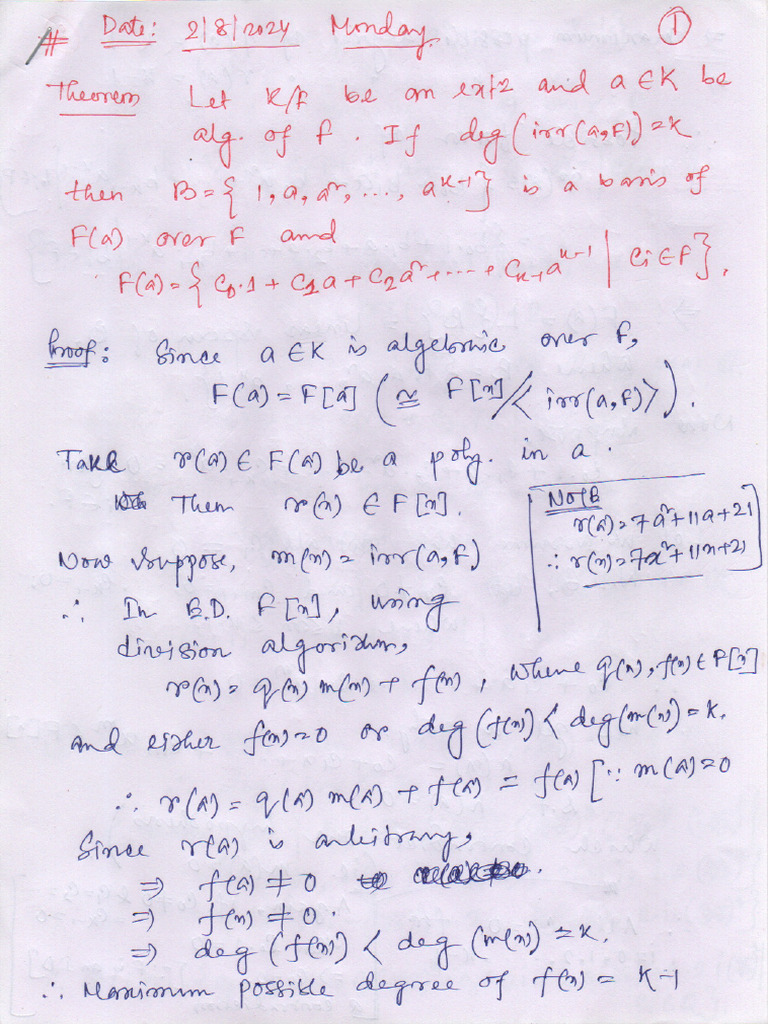 # Date: 2/8/2024 Monday. ①
Theorem Let K/F be an extn and a ∈ K be
alg. of F. If deg(irr(a,F)) = K
then B = { 1, a, a², ..., a^{K-1} } is a basis of
F(a) over F and
F(a) = { C₀.1 + C₁a + C₂a² + ... + C_{K-1}a^{K-1} | Ci ∈ F }.
Proof: Since a ∈ K is algebraic over F,
F(a) = F[a] ( ≅ F[x]/< irr(a,F) > ).
Take r(a) ∈ F(a) be a poly. in a.
Then r(x) ∈ F[x].
Note
r(a) = 7a² + 11a + 21
∴ r(x) = 7x² + 11x + 21
Now suppose, m(x) = irr(a,F)
∴ In E.D. F[x], using
division algorithm,
r(x) = q(x) m(x) + f(x), where q(x), f(x) ∈ F[x]
and either f(x) = 0 or deg(f(x)) < deg(m(x)) = K.
∴ r(a) = q(a) m(a) + f(a) = f(a) [∵ m(a) = 0
Since r(a) is arbitrary,
⇒ f(a) ≠ 0
⇒ f(x) ≠ 0.
⇒ deg(f(x)) < deg(m(x)) = K.
∴ Maximum possible degree of f(x) = K-1